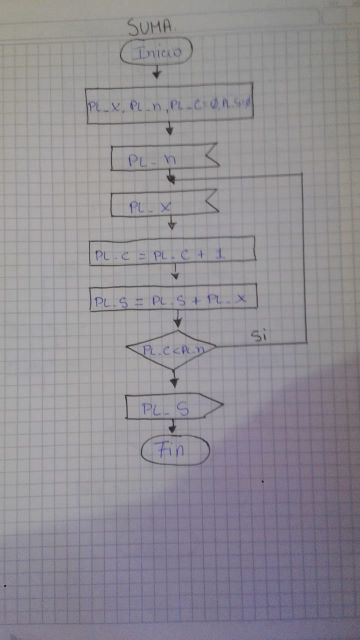 SUMA
Inicio
PL_X, PL_n, PL_C=0, PL_S=0
PL_n
PL_X
PL_C = PL_C + 1
PL_S = PL_S + PL_X
PL_C<PL_n
Si
PL_S
Fin